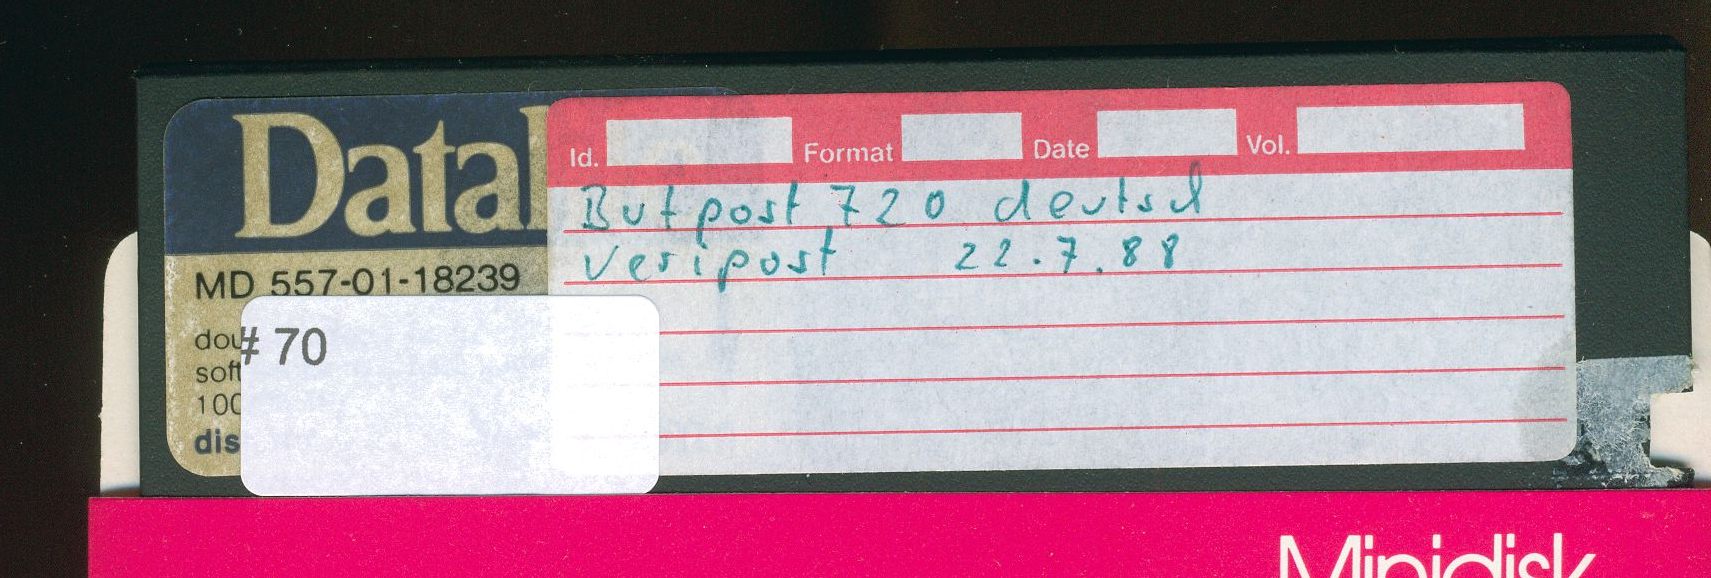 Data
Id. Format Date Vol.
Butpost 720 deutsch
Veripost 22.7.88
MD 557-01-18239
dou
soft
100
dis
# 70
Minidisk